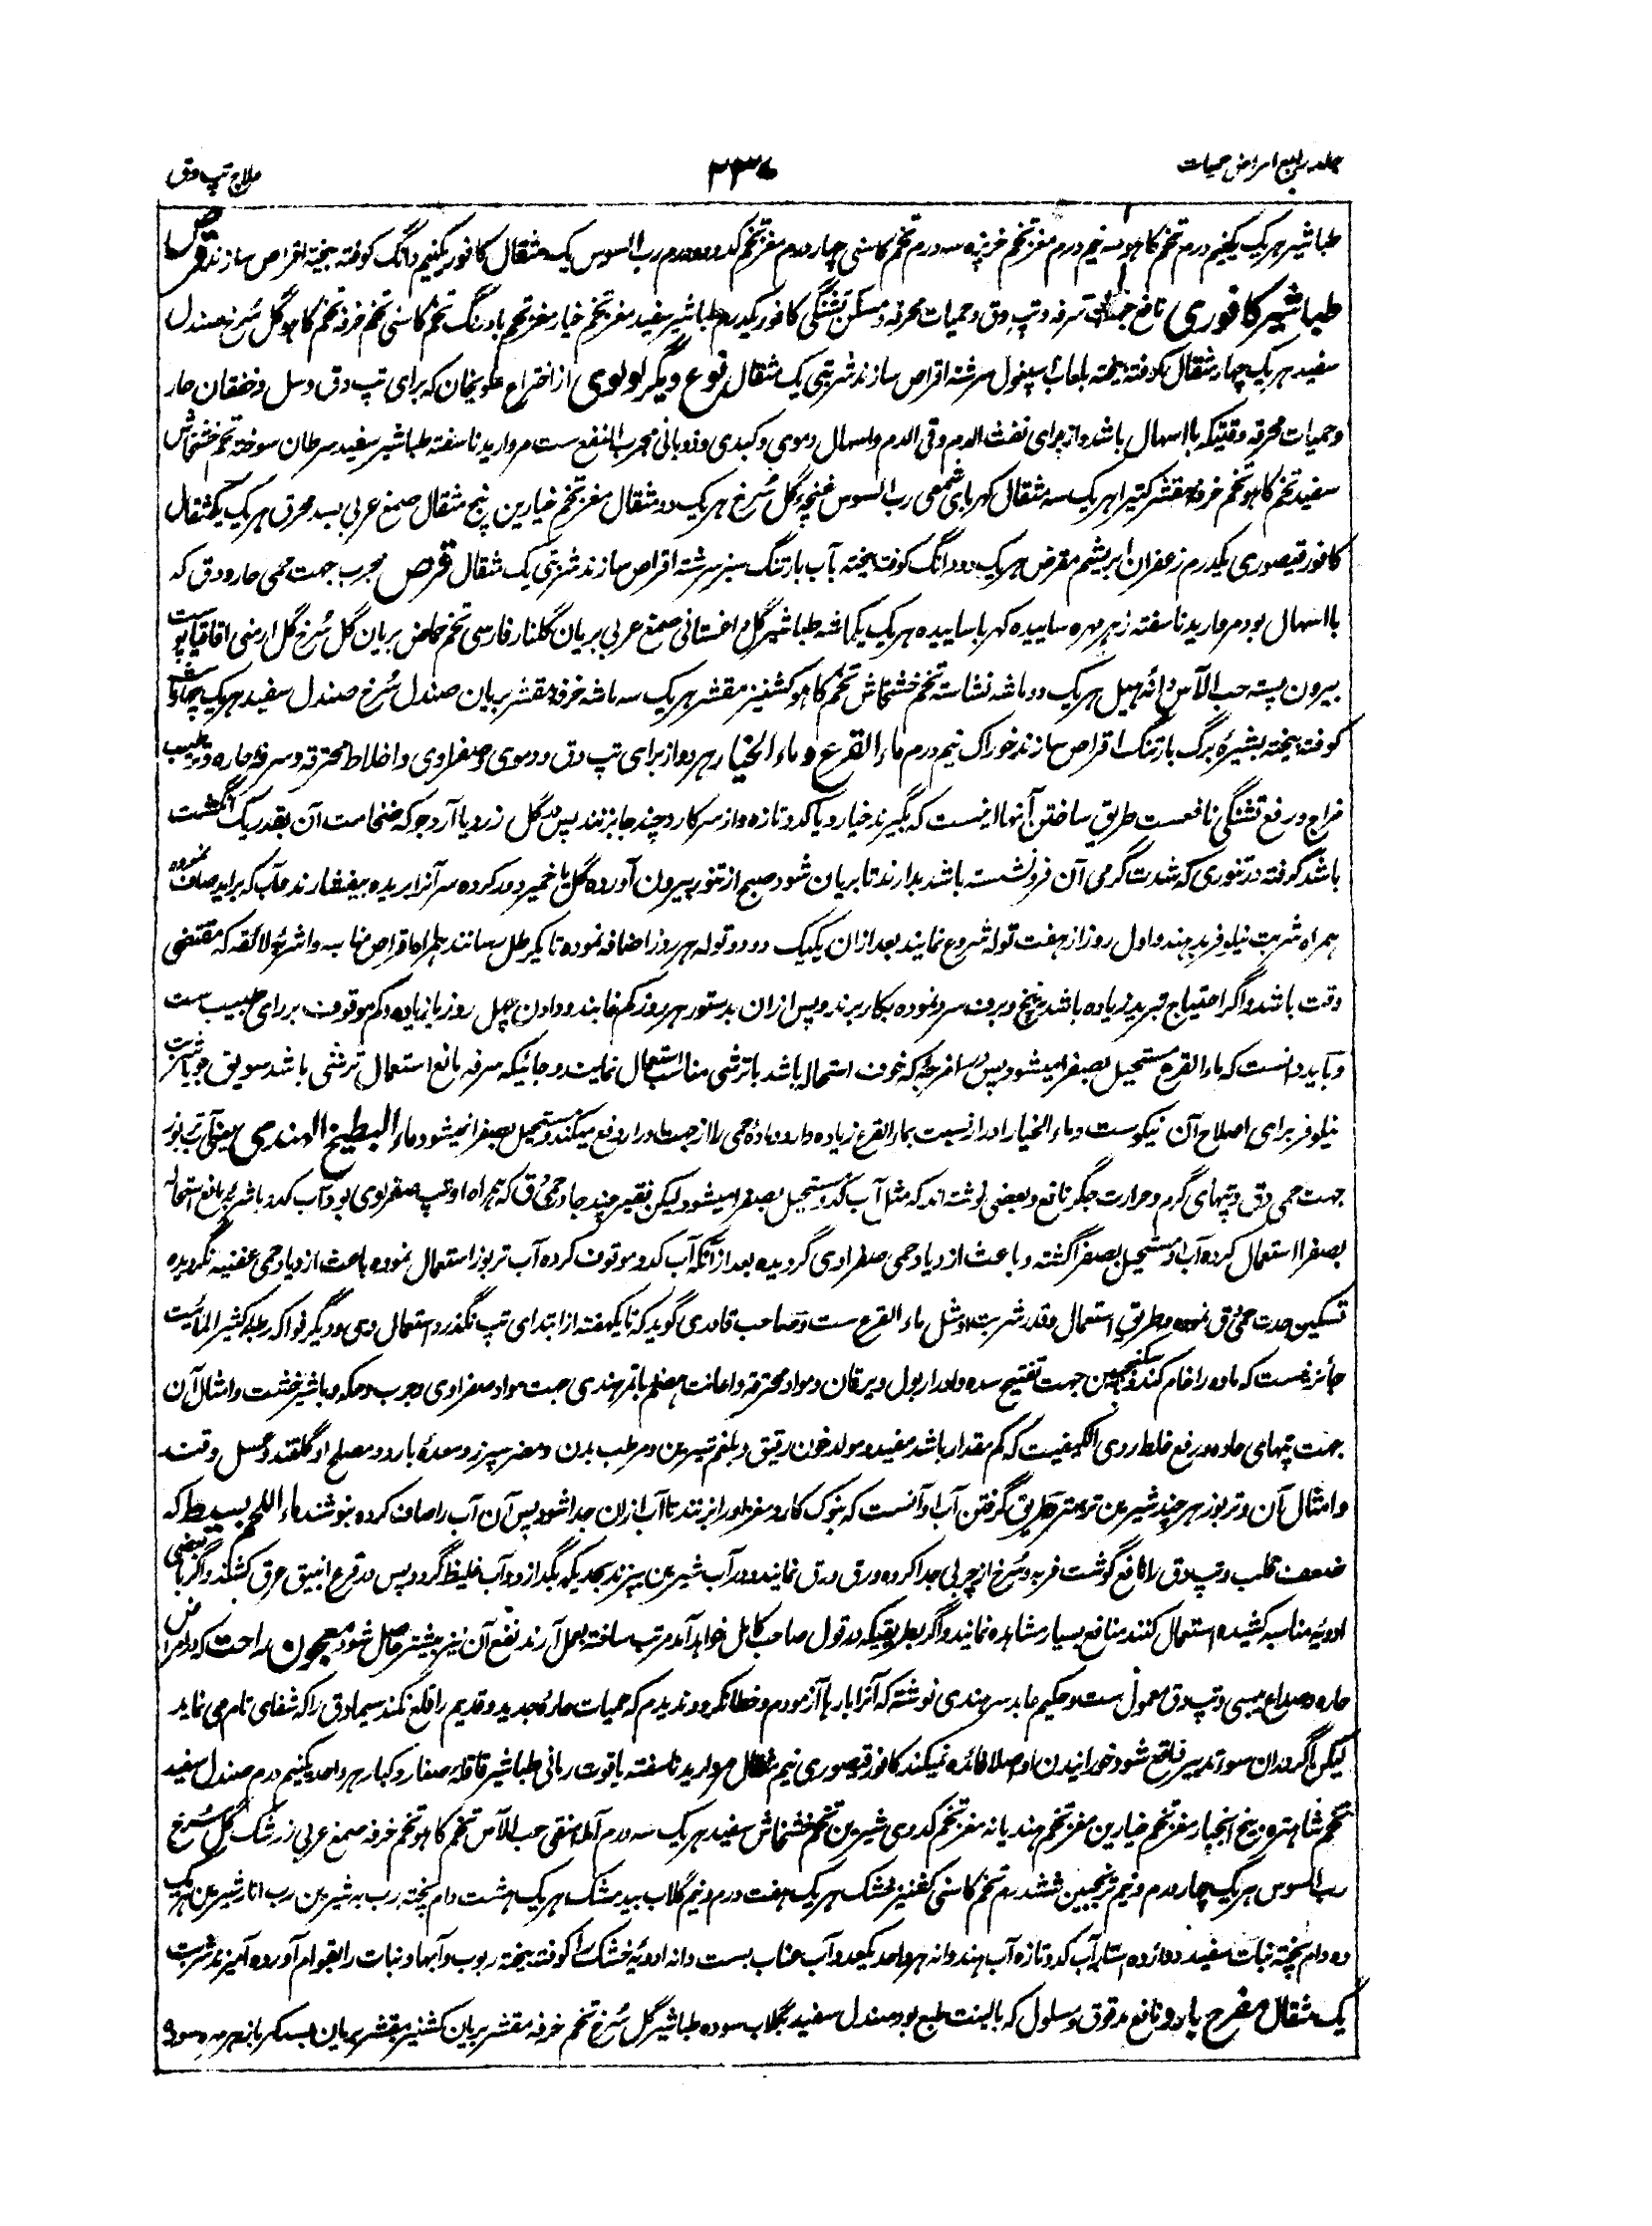 جلد رابع امراض حمیات
۲۳۶
علاج تپ دق
طباشیر هریک یکنیم درم تخم کاهو سه نیم درم مغز تخم خرپزه سه درم تخم کاسنی چهار درم مغز تخم کدو دو درم رب السوس یک مثقال کافور یکنیم دانگ کوفته بیخته اقراص سازند قرص
طباشیر کافوری نافع جهت سرفه و تپ دق و حمیات محرقه و مسکن تشنگی کافور یکدرم طباشیر سفید مغز تخم خیار مغز تخم بادرنگ تخم کاسنی تخم خرفه تخم کاهو گل سُرخ صندل
سفید هر یک چهار مثقال کوفته بیخته بلعاب اسپغول سرشته اقراص سازند شربتی یک مثقال نوع دیگر لولوی از اختراع علویخان که برای تپ دق و سل و خفقان حار
و حمیات محرقه وقتیکه با اسهال باشد و از برای نفث الدم و قی الدم و اسهال دموی و کبدی و ذوبانی مجرب النفع ست مروارید ناسفته طباشیر سفید سرطان سوخته تخم خشخاش
سفید تخم کاهو تخم خرفه مقشر کتیرا هریک سه مثقال کهربای شمعی رب السوس غنچه گل سُرخ هر یک دو مثقال مغز تخم خیارین پنج مثقال صمغ عربی بسد محرق هر یک یکمثقال
کافور قیصوری یکدرم زعفران ابریشم مقرض هریک دو دانگ کوفته بیخته بآب بارتنگ سبز سرشته اقراص سازند شربتی یک مثقال قرص مجرب جهت حمی حار و دق که
با اسهال بود مروارید ناسفته زهر مهره ساییده کهربا ساییده هر یک یکماشه طباشیر گل داغستانی صمغ عربی بریان گلنار فارسی تخم حماض بریان گل سُرخ گل ارمنی اقاقیا پوست
بیرون پسته حب الآس دانه هیل هریک دو ماشه نشاسته تخم خشخاش تخم کاهو کشنیز مقشر هریک سه ماشه خرفه مقشر بریان صندل سُرخ صندل سفید هریک چهار ماشه
کوفته بیخته بشیرهٔ برگ بارتنگ اقراص سازند خوراک نیم درم ماء القرع و ماء الخیار هر دو از برای تپ دق و دموی و صفراوی و اخلاط محترقه و سرفه حاره و ترطیب
مزاج و رفع تشنگی نافعست طریق ساختن آنها اینست که بگیرند خیار و یا کدو تازه و از سر کارد چند جا بزنند پس در گل زرد یا آرد جو که ضخامت آن بقدر یک انگشت
باشد گرفته در تنوری که شدت گرمی آن فرو نشسته باشد بدارند تا بریان شود صبح از تنور بیرون آورده گل یا خمیر دور کرده سر آنرا بریده بیفشارند و آب که برآید صاف نموده
همراه شربت نیلوفر بدهند و اول روز از هفت توله شروع نمایند بعد ازان یک یک دو دو توله هر روز اضافه نموده تا یک رطل رسانند همراه اقراص مناسبه و اشربهٔ لائقه که مقتضی
وقت باشد و اگر احتیاج تبرید زیاده باشد به یخ و برف سرد نموده بکار برند و پس ازان بدستور هر روز کم نمایند و دادن چهل روز یا زیاده و کم موقوف بر رای طبیب ست
و باید دانست که ماء القرع مستحیل بصفرا میشود پس در امزجه که خوف استحاله باشد با ترشی مناسب استعمال نمایند و جائیکه سرفه مانع استعمال ترشی باشد سویق جو یا شربت
نیلوفر برای اصلاح آن نیکوست و ماء الخیار ادرار نسبت بماء القرع زیاده دارد و مادهٔ حمی را از جهت ادرار دفع میکند و مستحیل بصفرا نمیشود ماء البطیخ الهندی یعنی آب تربوز
جهت حمی دق و تپهای گرم و حرارت جگر نافع و بعضی نوشته اند که مثل آب کدو مستحیل بصفرا میشود لیکن فقیر چند جا در حمی دق که همراه او تپ صفراوی بود آب کدو با اشربهٔ مانع استحاله
بصفرا استعمال کرده آب او مستحیل بصفرا گشته و باعث ازدیاد حمی صفراوی گردیده بعد ازآنکه آب کدو موقوف کرده آب تربوز استعمال نموده باعث ازدیاد حمی عفنیه نگردیده
تسکین حدت حمی دق نموده و طریق استعمال و قدر شربت او مثل ماء القرع ست و صاحب قادری گوید که تا یکهفته از ابتدای تپ نگذرد استعمال وی و دیگر فواکه رطبه کثیر المائیت
جائز نیست که ماده را خام کند و سکنجبین جهت تفتیح سده و ادرار بول و یرقان و مواد محترقه و اعانت هضم با تمر هندی جهت مواد صفراوی و جرب و حکه و با شیر خشت و امثال آن
جهت تپهای حاده و رفع خلط ردی الکیفیت که کم مقدار باشد مفید و مولد خون رقیق و بلغم شیرین و مرطب بدن و مضر سپرز و معدهٔ بارد و مصلح او گلقند و عسل و قند
و امثال آن و تربوز هر چند شیرین تر بهتر طریق گرفتن آب او آنست که بنوک کارد مغز او را بزنند تا آب ازان جدا شود پس آن آب را صاف کرده بنوشند ماء اللحم بسیط که
ضعف قلب و تپ دق را نافع گوشت فربه و سُرخ از چربی جدا کرده ورق ورق نمایند و در آب شیرین بپزند بحدیکه بگدازد و آب غلیظ گردد پس در قرع انبیق عرق کشند و اگر با بعضی
ادویه مناسبه کشیده استعمال کنند منافع بسیار مشاهده نمایند و اگر بطریقیکه در قول صاحب کامل خواهد آمد مرتب ساخته بعمل آرند نفع آن نیز بیشتر حاصل شود معجون راحت که در امراض
حاره و صداع یبسی و تپ دق معمول ست و حکیم عابد سرهندی نوشته که آنرا بارها آزمودم و خطا نکرد و ندیدم که حمیات حادهٔ جدید و قدیم را قلع نکند سیما دق را که شفای تام می نماید
لیکن اگر دران سوء تدبیر واقع شود خورانیدن او اصلا فائده نمیکند کافور قیصوری نیم مثقال مروارید ناسفته یاقوت رمانی طباشیر قاقله صغار و کبار هر واحد یکنیم درم صندل سفید
تخم شاهتره بیخ انجبار مغز تخم خیارین مغز تخم هندیانه مغز تخم کدوی شیرین تخم خشخاش سفید هریک سه درم آمله منقی حب الآس تخم کاهو تخم خرفه صمغ عربی زرشک گل سُرخ
رب السوس هر یک چهار درم و نیم ترنجبین ششدرم تخم کاسنی کشنیز خشک هر یک هفت درم و نیم گلاب بید مشک هر یک هشت دام پخته رب به شیرین رب انار شیرین هریک
ده دام پخته نبات سفید دوازده استار آب کدو تازه آب هندوانه هر واحد یکصد و آب عناب بست دانه ادویه خشک را کوفته بیخته ربوب و آبها و نبات را بقوام آورده آمیزند شربت
یک مثقال مفرح بارد نافع مدقوق و مسلول که با لینت طبع بود صندل سفید بگلاب سوده طباشیر گل سُرخ تخم خرفه مقشر بریان کشنیز مقشر بریان بسد کهربا زهر مهره سوده